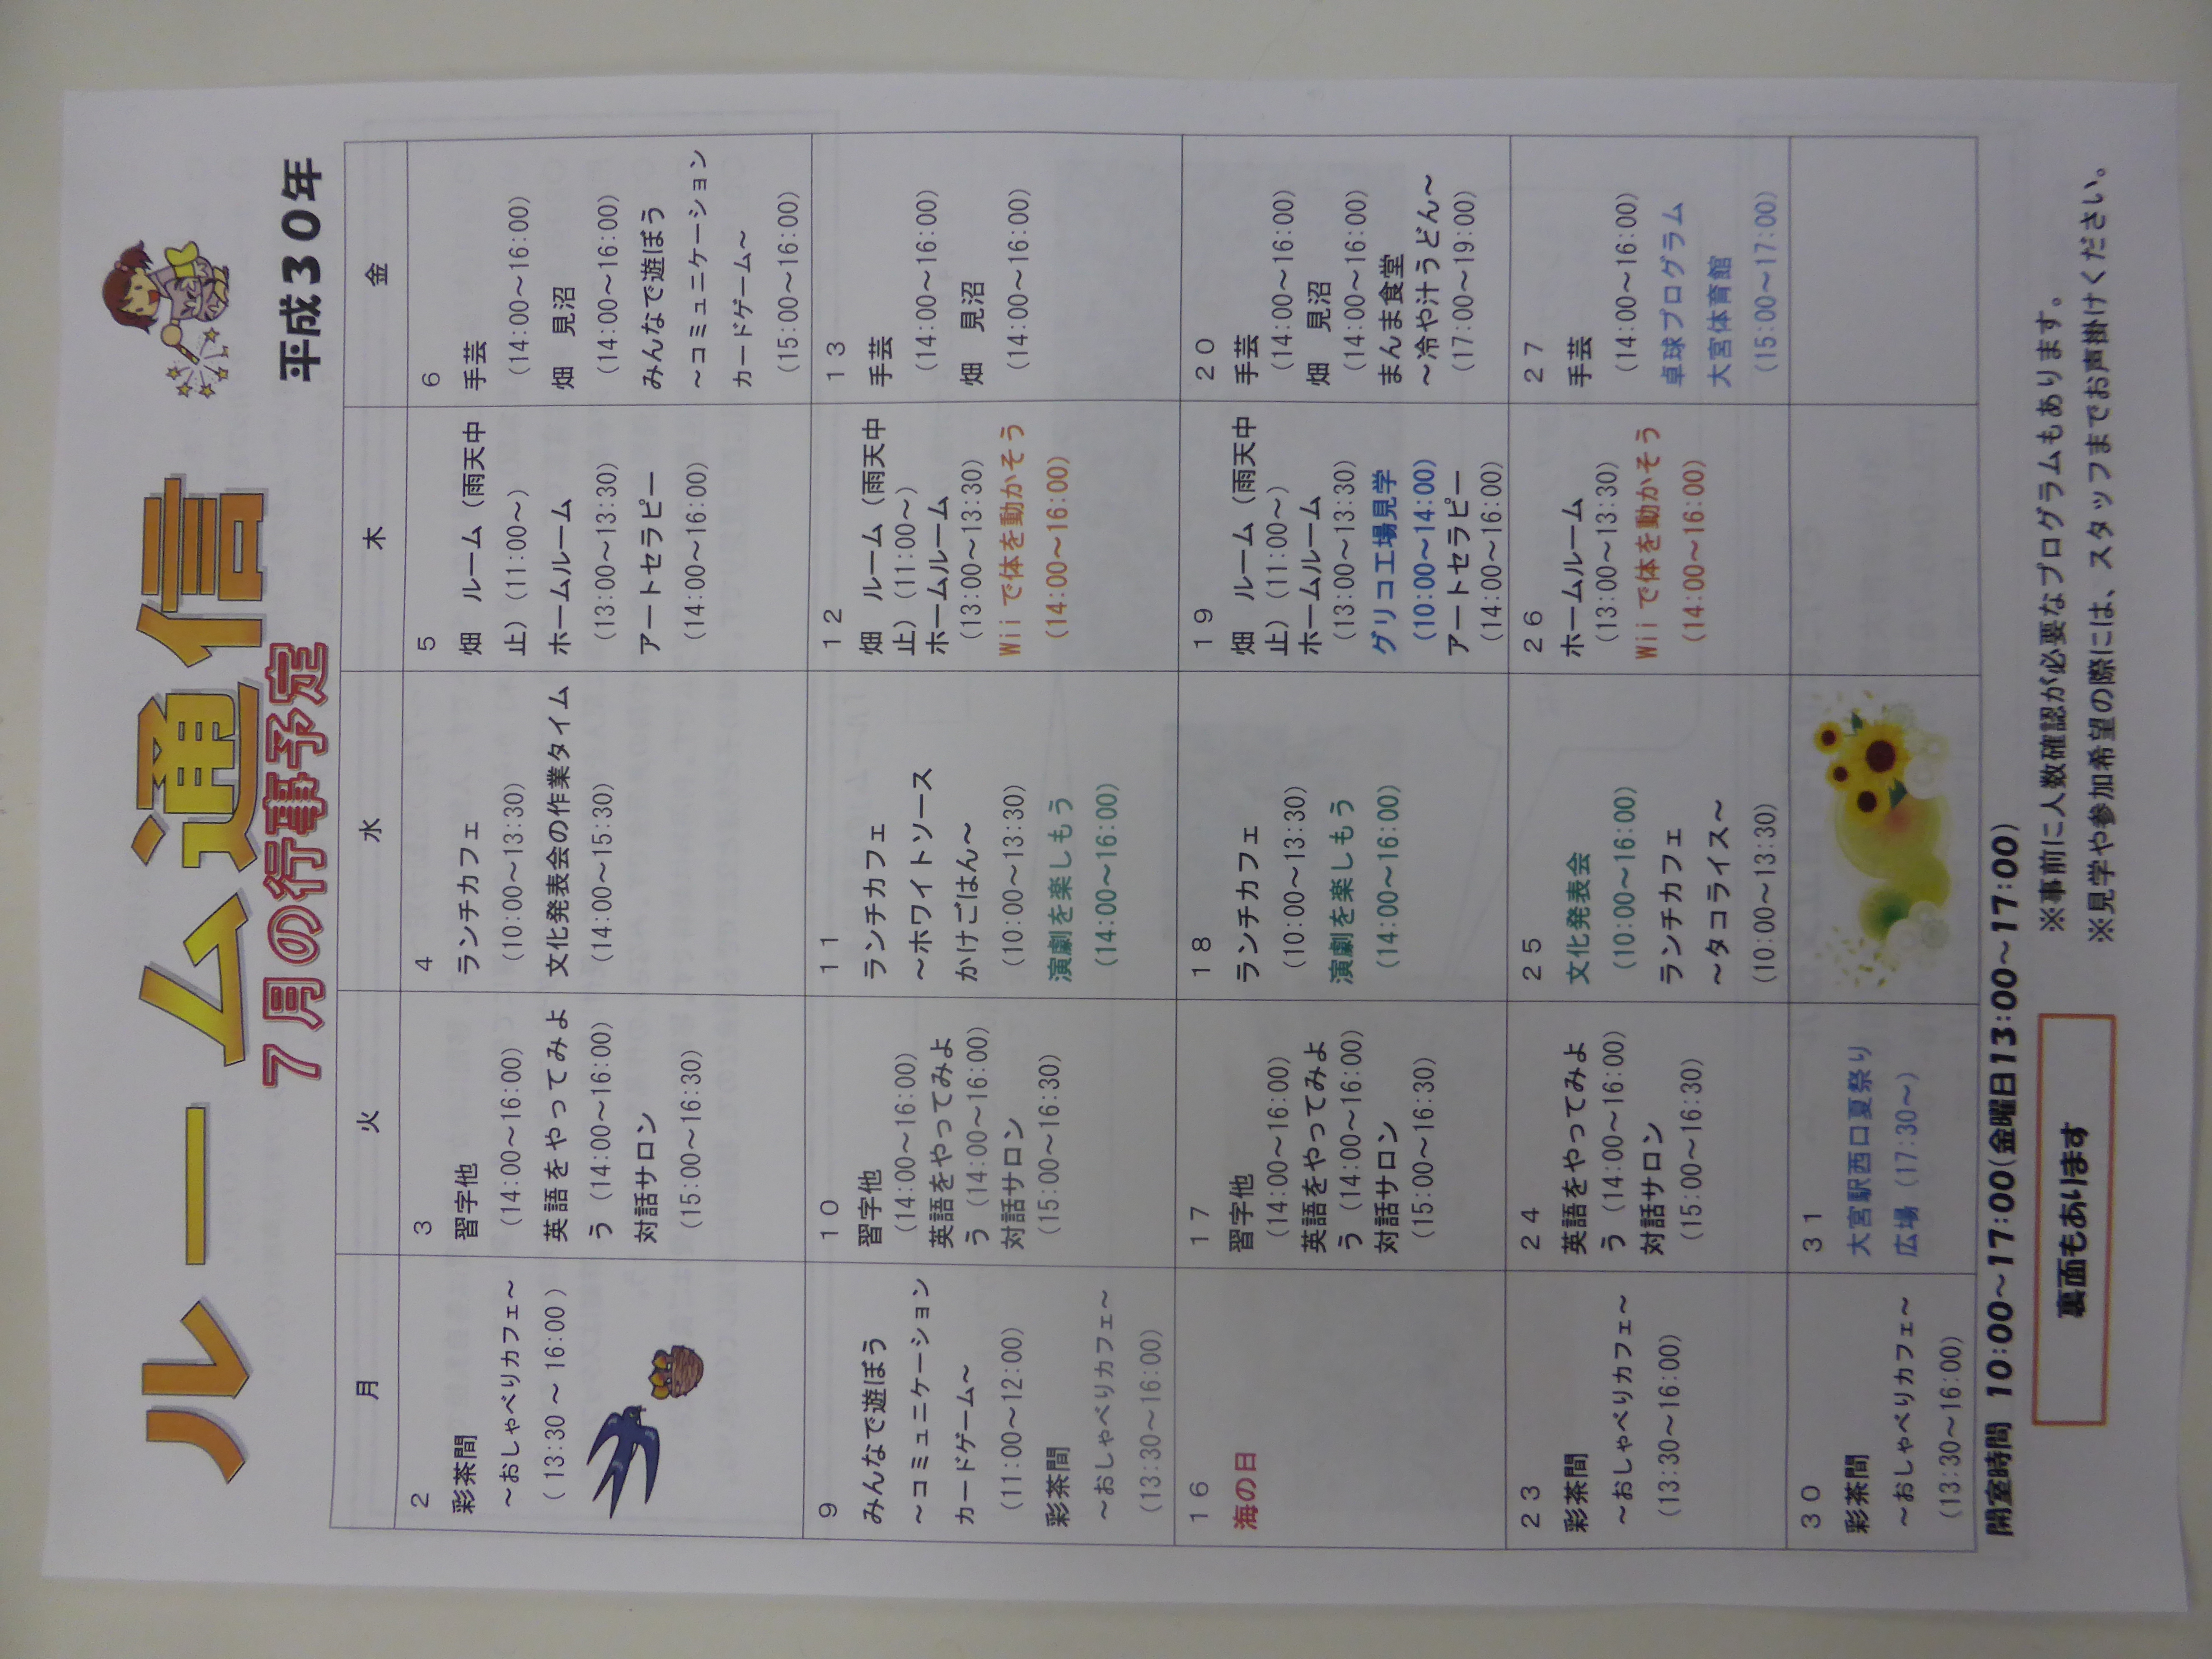 ルーム通信
7月の行事予定
平成30年
月
火
水
木
金
2
彩茶間
～おしゃべりカフェ～
(13:30～16:00)
3
習字他
(14:00～16:00)
英語をやってみよ
う (14:00～16:00)
対話サロン
(15:00～16:30)
4
ランチカフェ
(10:00～13:30)
文化発表会の作業タイム
(14:00～15:30)
5
畑 ルーム（雨天中
止）(11:00～)
ホームルーム
(13:00～13:30)
アートセラピー
(14:00～16:00)
6
手芸
(14:00～16:00)
畑 見沼
(14:00～16:00)
みんなで遊ぼう
～コミュニケーション
カードゲーム～
(15:00～16:00)
9
みんなで遊ぼう
～コミュニケーション
カードゲーム～
(11:00～12:00)
彩茶間
～おしゃべりカフェ～
(13:30～16:00)
10
習字他
(14:00～16:00)
英語をやってみよ
う (14:00～16:00)
対話サロン
(15:00～16:30)
11
ランチカフェ
～ホワイトソース
かけごはん～
(10:00～13:30)
演劇を楽しもう
(14:00～16:00)
12
畑 ルーム（雨天中
止）(11:00～)
ホームルーム
(13:00～13:30)
Wiiで体を動かそう
(14:00～16:00)
13
手芸
(14:00～16:00)
畑 見沼
(14:00～16:00)
16
海の日
17
習字他
(14:00～16:00)
英語をやってみよ
う (14:00～16:00)
対話サロン
(15:00～16:30)
18
ランチカフェ
(10:00～13:30)
演劇を楽しもう
(14:00～16:00)
19
畑 ルーム（雨天中
止）(11:00～)
ホームルーム
(13:00～13:30)
グリコ工場見学
(10:00～14:00)
アートセラピー
(14:00～16:00)
20
手芸
(14:00～16:00)
畑 見沼
(14:00～16:00)
まんま食堂
～冷や汁うどん～
(17:00～19:00)
23
彩茶間
～おしゃべりカフェ～
(13:30～16:00)
24
英語をやってみよ
う (14:00～16:00)
対話サロン
(15:00～16:30)
25
文化発表会
(10:00～16:00)
ランチカフェ
～タコライス～
(10:00～13:30)
26
ホームルーム
(13:00～13:30)
Wiiで体を動かそう
(14:00～16:00)
27
手芸
(14:00～16:00)
卓球プログラム
大宮体育館
(15:00～17:00)
30
彩茶間
～おしゃべりカフェ～
(13:30～16:00)
31
大宮駅西口夏祭り
広場 (17:30～)
開室時間 10:00～17:00(金曜日13:00～17:00)
※事前に人数確認が必要なプログラムもあります。
※見学や参加希望の際には、スタッフまでお声掛けください。
裏面もあります